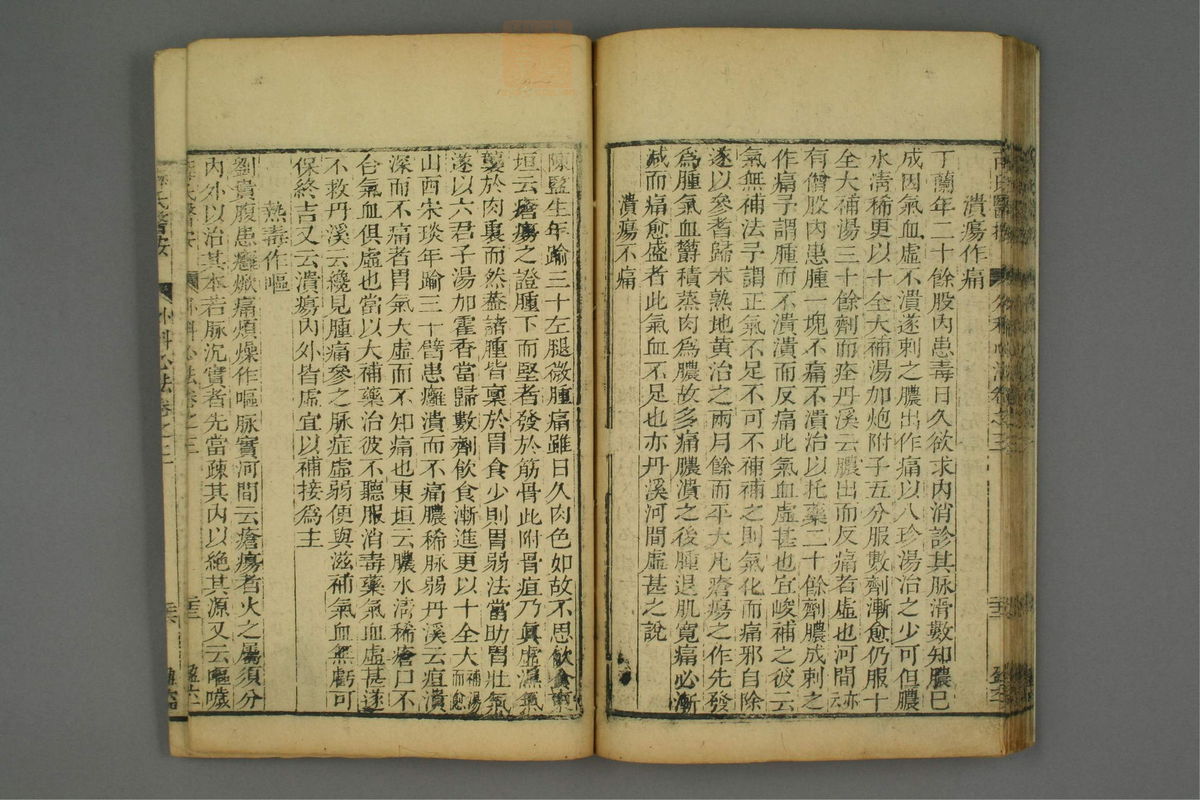 潰瘍作痛
丁蘭年二十餘股內患毒日久欲求內消診其脉滑數知膿已
成因氣血虛不潰遂刺之膿出作痛以八珍湯治之少可但膿
水清稀更以十全大補湯加炮附子五分服數劑漸愈仍服十
全大補湯三十餘劑而痊丹溪云膿出而反痛者虛也河間亦云
有僧股內患腫一塊不痛不潰治以托藥二十餘劑膿成刺之
作痛予謂腫而不潰潰而反痛此氣血虛甚也宜峻補之彼云
氣無補法予謂正氣不足不可不補補之則氣化而痛邪自除
遂以參耆歸朮熟地黃治之兩月餘而平大凡瘡瘍之作先發
爲腫氣血欝積蒸肉爲膿故多痛膿潰之後腫退肌寬痛必漸
减而痛愈盛者此氣血不足也亦丹溪河間虛甚之說
潰瘍不痛
陳監生年踰三十左腿微腫痛雖日久肉色如故不思飲食東
垣云瘡瘍之證腫下而堅者發於筋骨此附骨疽乃眞虛濕氣
襲於肉裏而然葢諸腫皆禀於胃食少則胃弱法當助胃壯氣
遂以六君子湯加霍香當歸數劑飲食漸進更以十全大補湯而愈
山西宋琰年踰三十臂患癰潰而不痛膿稀脉弱丹溪云疽潰
深而不痛者胃氣大虛而不知痛也東垣云膿水清稀瘡口不
合氣血俱虛也當以大補藥治彼不聽服消毒藥氣血虛甚遂
不救丹溪云纔見腫痛參之脉症虛弱便與滋補氣血無虧可
保終吉又云潰瘍內外皆虛宜以補接爲主
熱毒作嘔
劉貴腹患癰焮痛煩燥作嘔脉實河間云瘡瘍者火之屬須分
內外以治其本若脉沉實者先當疎其內以絶其源又云嘔噦
薛氏醫按
外科心法卷之三